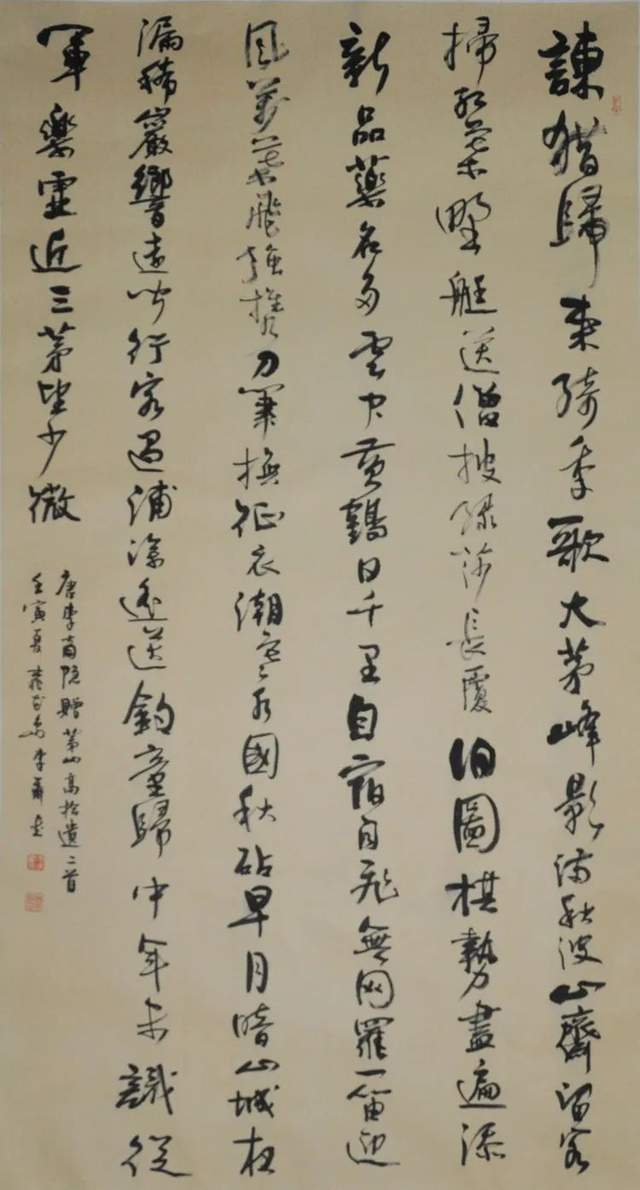 諫猎歸來綺季歌大茅峰影滿秋波山齋留客
掃紅葉野艇送僧披綠莎長覆旧圖棋勢盡遍添
新品藥名多雲中黄鶴日千里自宿自飛無网羅一笛迎
風萬葉飛強携刀筆換征衣潮寒水國秋砧早月暗山城
漏稀巖響遠聞行客過浦深遙送釣童歸中年未識從
軍樂虚近三茅望少微
唐李商隐贈茅山高拾遺二首
壬寅夏